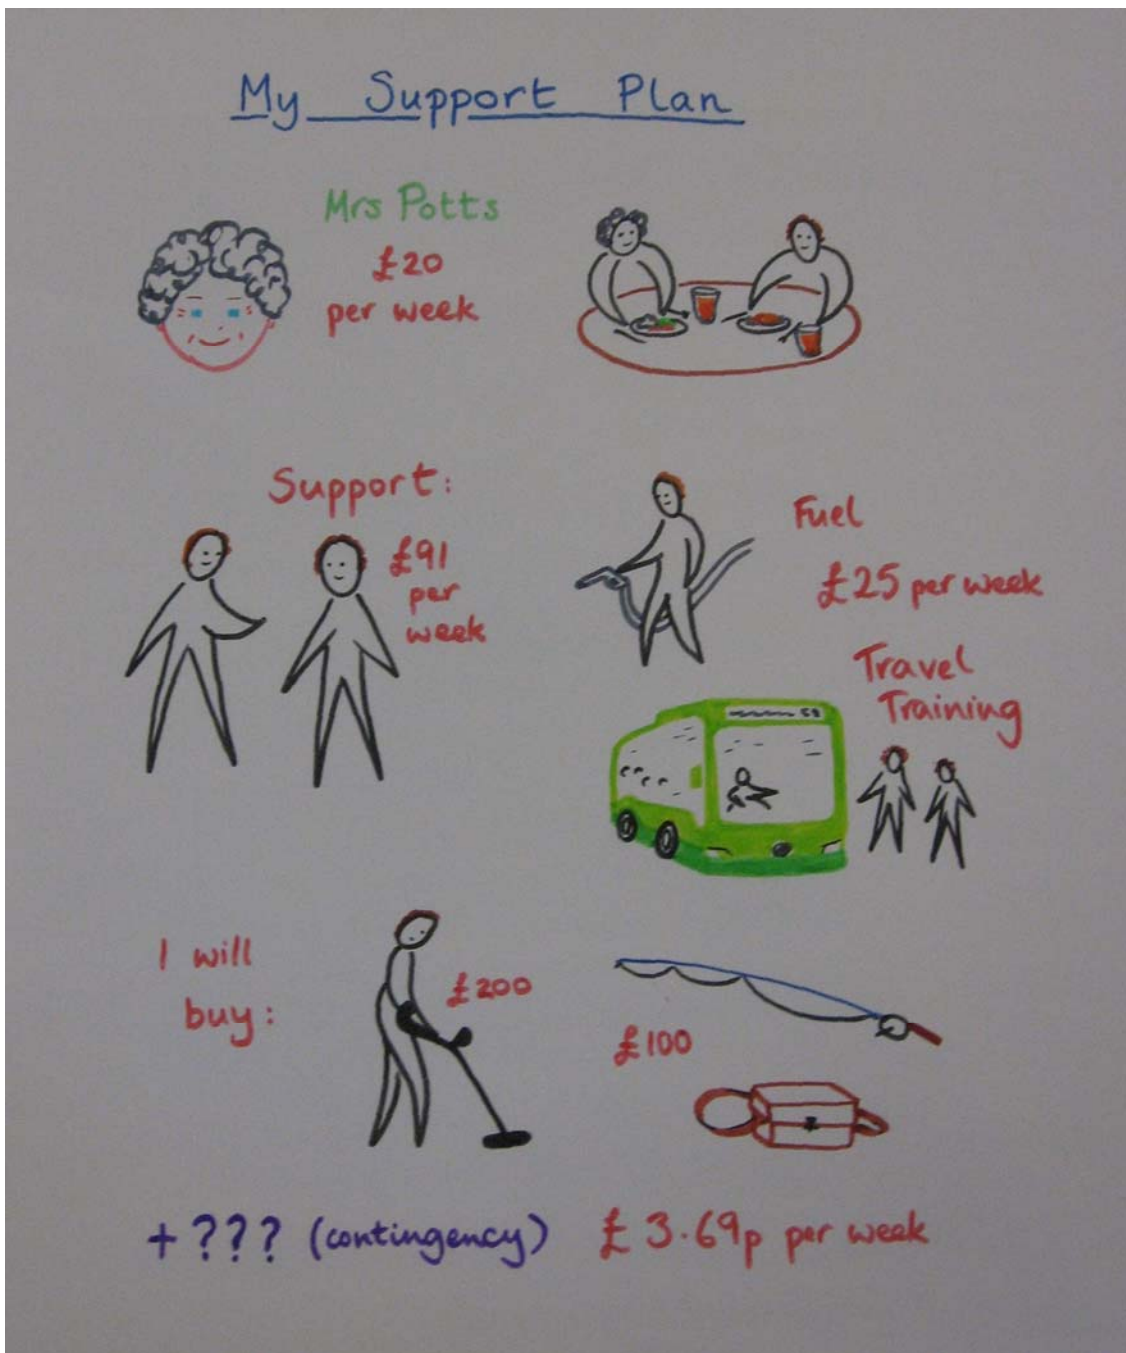 My Support Plan
Mrs Potts
£20
per week
Support:
£91
per
week
Fuel
£25 per week
Travel
Training
58
I will
buy:
£200
£100
+ ??? (contingency) £3.69p per week